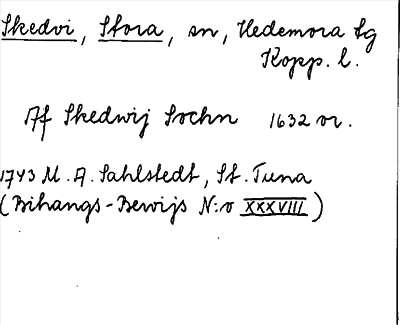 Skedvi, Stora, sn, Hedemora tg
Kopp. l.
Af Skedwij Sochn 1632 or.
1743 M. A. Sahlstedt, St. Tuna
(Bihangs-Bewijs N:o XXXVIII)